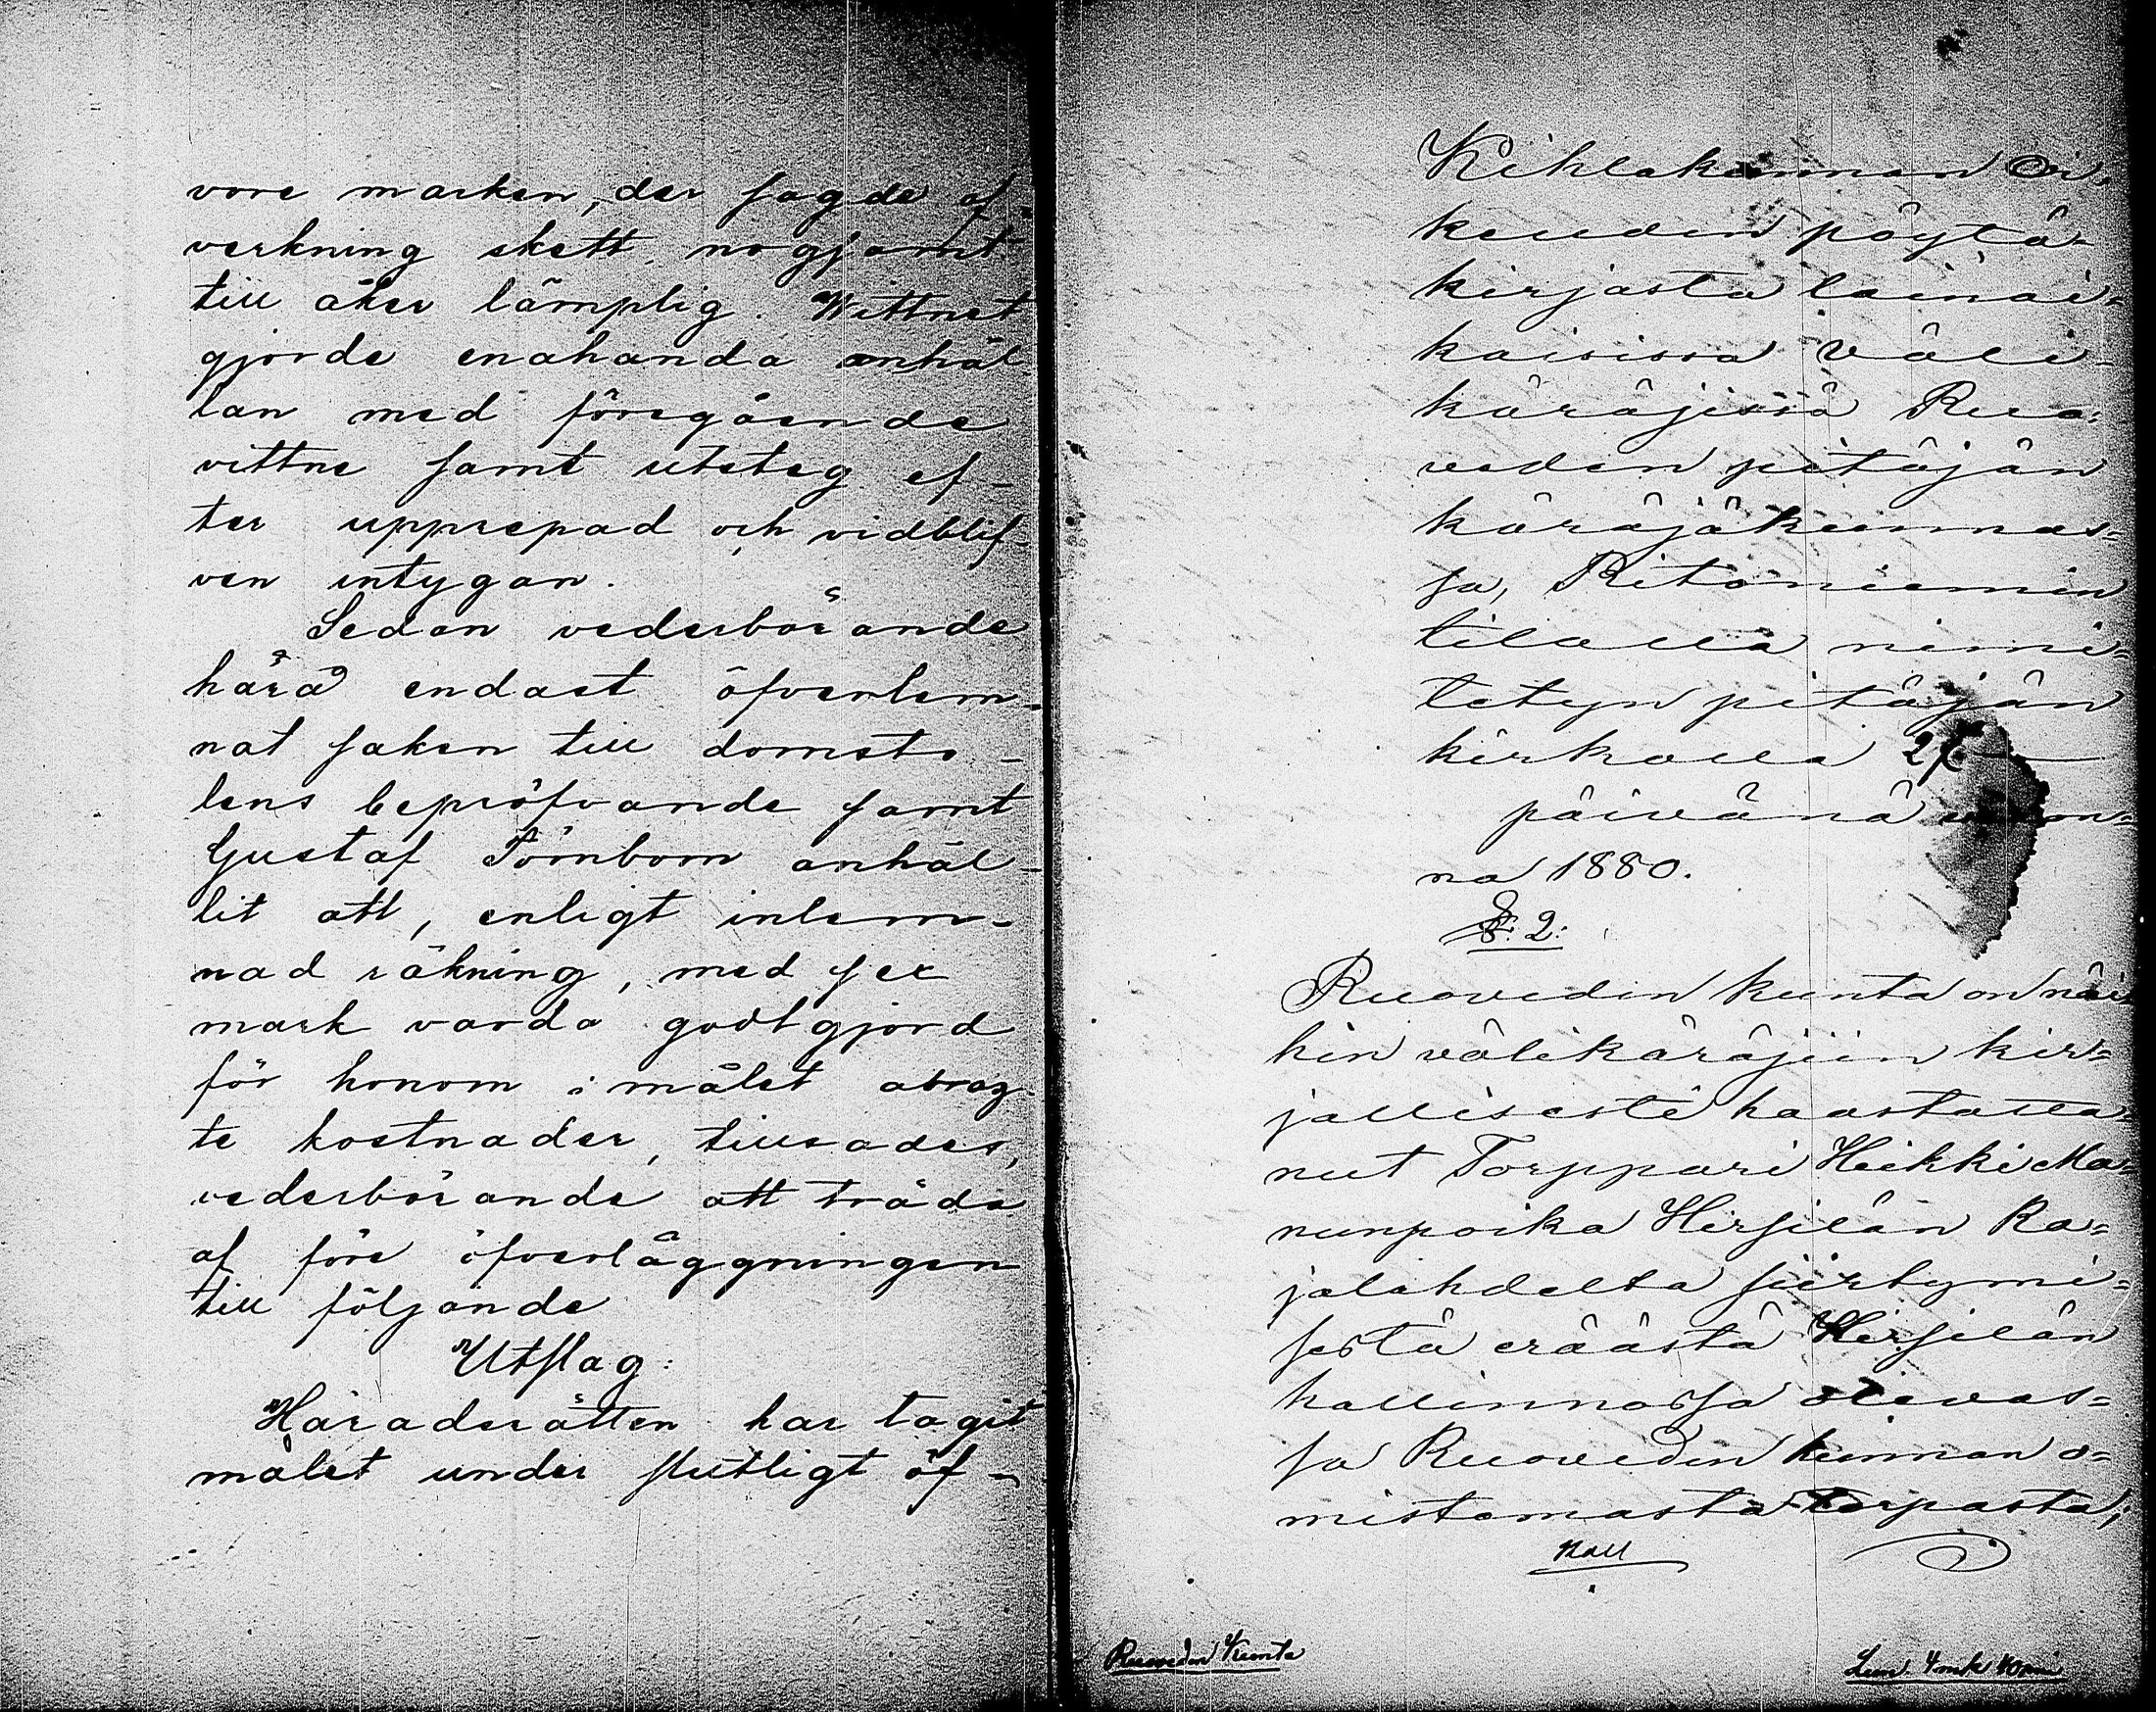 vore marken, der sagde af-
verkning skett, nogsamt
till åker lämplig. Wittnet
gjorde enahanda anhål-
lan med föregående
vittne samt utsteg ef-
ter upprepad och vidblif-
ven intygan.
Sedan vederbörande
härå endast öfverlem-
nat saken till domsto-
lens bepröfvande samt
Gustaf Törnbom anhål-
lit att, enligt inlem-
nad räkning, med sex
mark varda godtgjord
för honom i målet åbrag-
te kostnader, tillsades,
vederbörande att träda
af före öfverläggningen
till följande
Utslag:
Häradsrätten har tagit
målet under slutligt öf-
Kihlakunnan Oi-
keuden pöytä-
kirjasta lainai-
kaisissa Väli-
käräjissä Ruo-
veden pitäjän
käräjäkunnas-
sa, Ritoniemin
tilalla nimi-
tetyn pitäjän
kirkolla 27
päivänä
na 1880.
§. 2:
Ruoveden kunta on näi-
hin välikäräjiin kir-
jallisesti haastatta-
nut Torppari Heikki Ma-
nunpoika Hirsilän Ra-
jalahdelta siirtymi-
sestä eräästä Hirsilän
hallinnossa olevas-
sa Ruoveden kunnan o-
mistamasta torpasta;
Ruoveden Kunta
Luns. 4 mk 40 pni